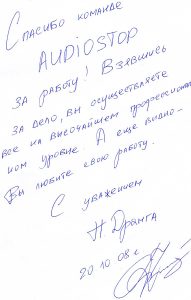 Спасибо команде
AUDIOSTOP
за работу! Взявшись
за дело, вы осуществляете
все на высочайшем профессионал
ном уровне. А еще видно -
Вы любите свою работу.
С уважением
Дранга
20.10.08 г.